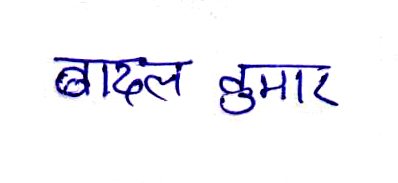 बादल कुमार